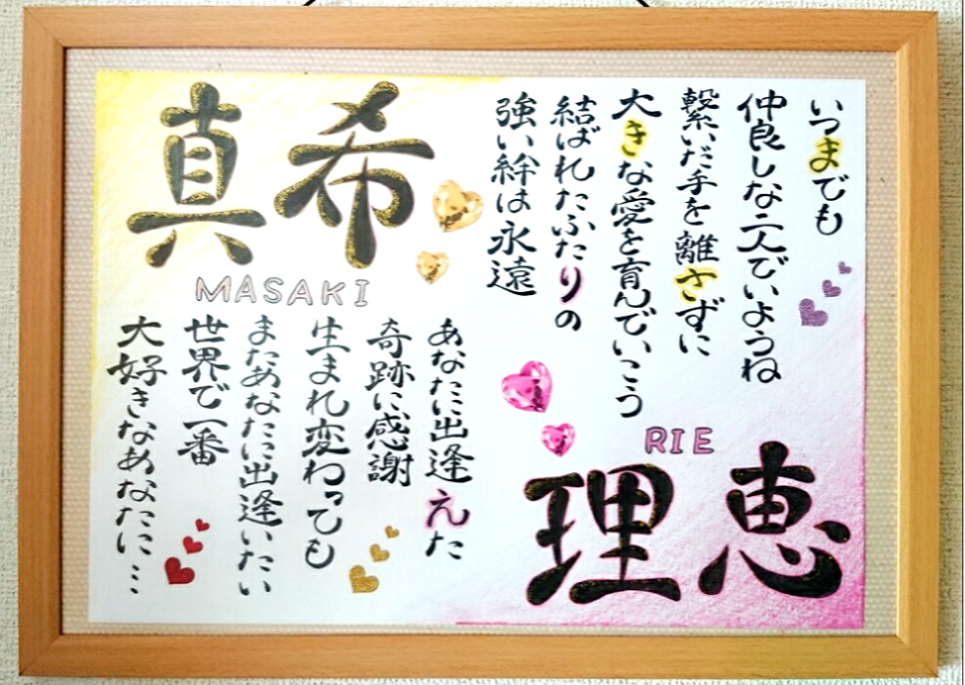 いつまでも
仲良しな二人でいようね
繋いだ手を離さずに
大きな愛を育んでいこう
結ばれたふたりの
強い絆は永遠
真希
MASAKI
RIE
理恵
あなたに出逢えた
奇跡に感謝
生まれ変わっても
またあなたに出逢いたい
世界で一番
大好きなあなたに…